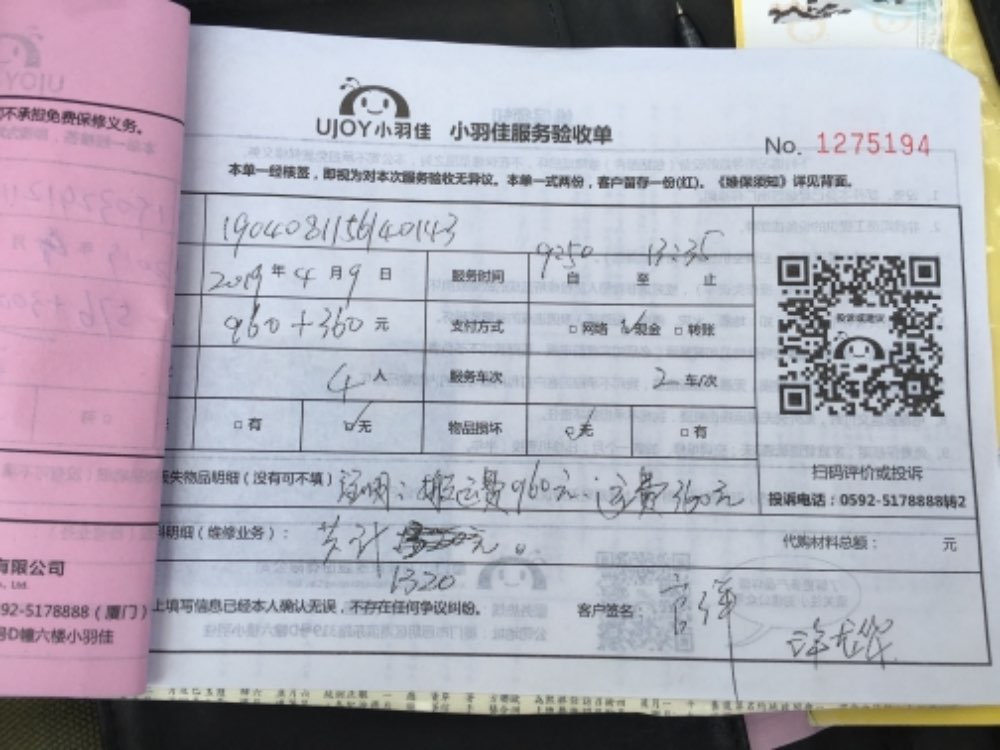 不承担免费保修义务。
UJOY小羽佳 小羽佳服务验收单
No. 1275194
本单一经核签，即视为对本次服务验收无异议。本单一式两份，客户留存一份(红)。《维保须知》详见背面。
1904081156140143
2019年4月9日 服务时间 9:50自 至 13:35止
960+360元 支付方式 □网络 □现金 □转账
4人 服务车次 2车/次
□有 □无 物品损坏 □无 □有
投诉或建议
失物品明细（没有可不填） 说明：搬运费960元 运费360元
扫码评价或投诉
投诉电话：0592-5178888转2
料明细（维修业务）： 共计 元。
1320
代购材料总额： 元
上填写信息已经本人确认无误，不存在任何争议纠纷。 客户签名：
有限公司
., Ltd.
92-5178888（厦门）
号D幢六楼小羽佳